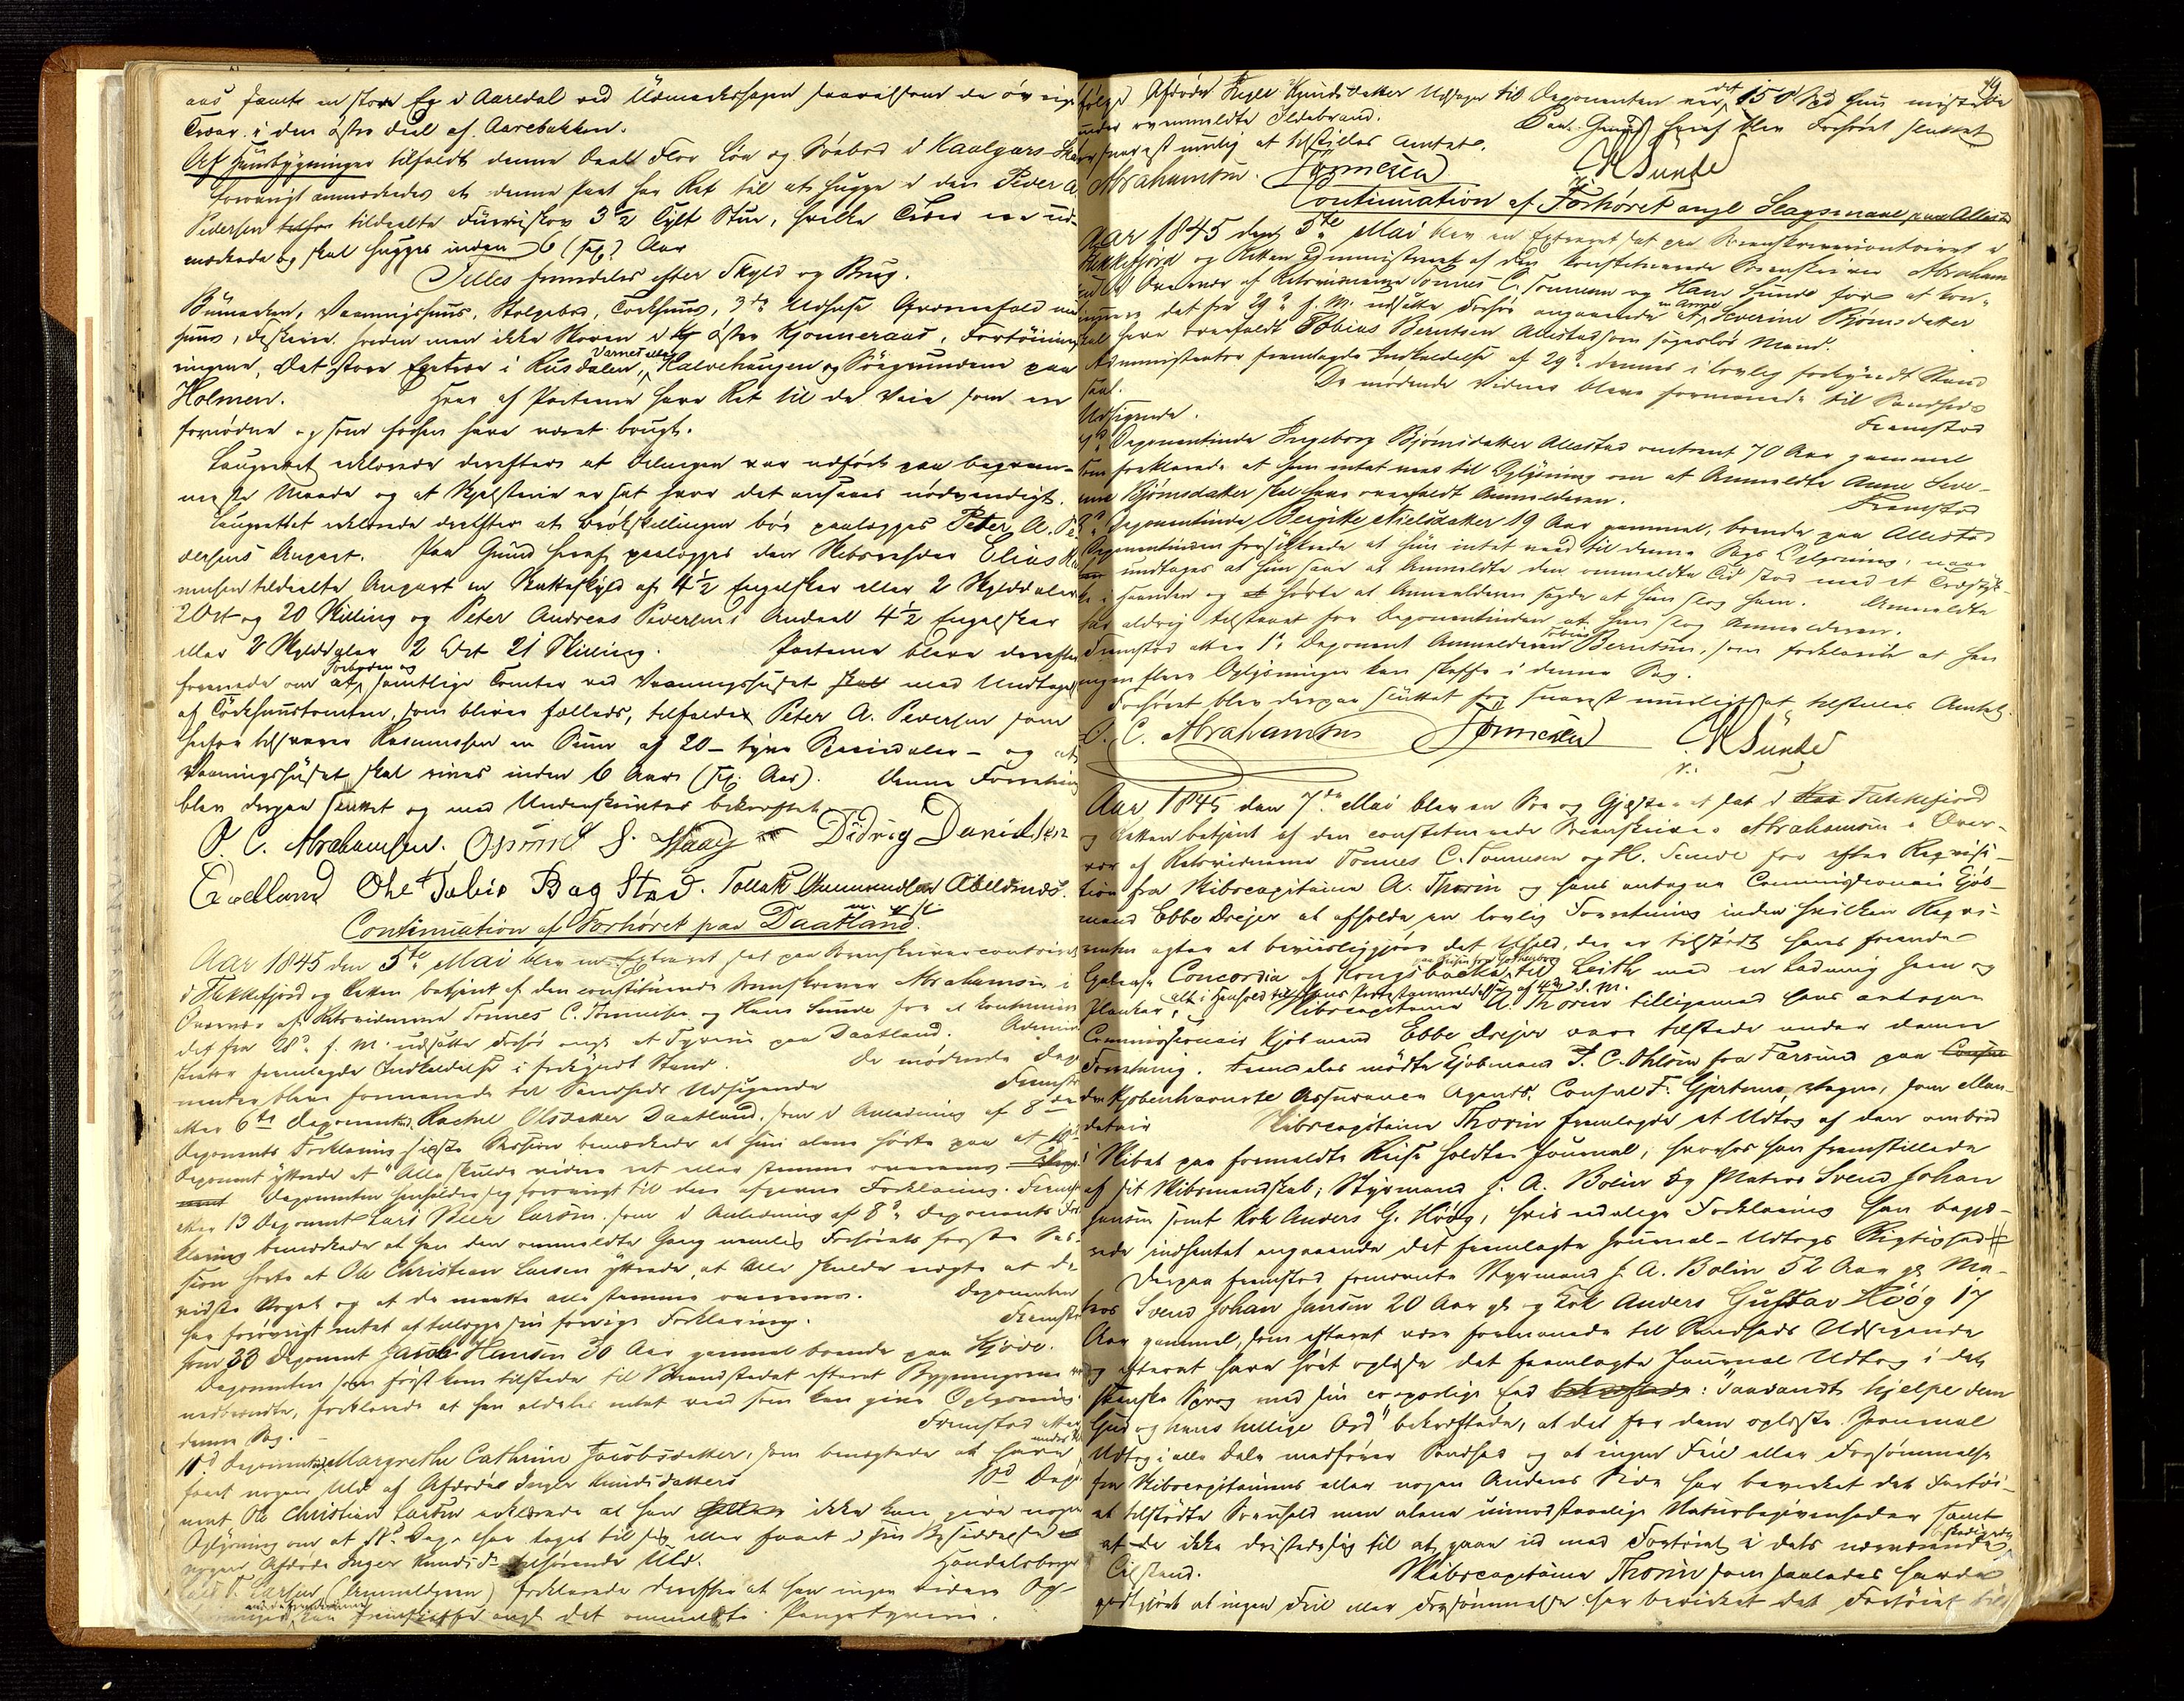 aas samt en stor Eg i Aaredal ved Udmarkshagen saavelsom de øvrige
Træer i den østre Deel af Aarebakken.
Af Huusbygninger tilfaldt denne Deel Flor Løe og Søebod i Kaalgars-
forøvrigt anmærkedes at denne Part har Ret til at hugge i den Peder A
Pedersen tildeelte Furuskov 3½ Tylt Stur, hvilke Træer ere ud-
mærkede og skal hugges inden 6 (sex) Aar
Fælles henvendes efter Skyld og Brug.
Bumarken, Vaaningshuus, Stolpebod, Torkhuus, 3de Udhuse
huus, Fiskerie heeden men ikke Skoven i østre Kjonneraas, Fortøinings
ringene, det store Egetræ i Rusdalen, Varnet eller Kalvehaugen og Søegrundene paa
Holmen. Hver af Parterne have Ret til de Veie som ere
fornødne og som forhen have været brugt.
Laugrettet erklærede derefter at Delingen var udført paa beqvem-
meste Maade og at Skjelstene er sat hvor det ansees nødvendigt.
Laugrettet erklærede derefter at Brøkskillingen bør paalægges Peter A. Pe
dersens Anpart. Paa Grund heraf paalægges den Skibsreder Elias Ra
mussen tildeelte Anpart en Skatteskyld af 4½ Engelsker eller 2 Skylddaler
2 Ort og 20 Skilling og Peter Andreas Pedersens Andeel 4½ Engelsker
eller 2 Skylddaler 2 Ort 21 Skilling. Parterne bleve derefter
forenede om at samtlige Tomter ved Vaaningshuset med Undtagelse
af Torkhuustomten, som bliver fælleds, tilfalder Peter A. Pedersen som
herfor tilsvarer Rasmussen en Sum af 20 - tyve Speciedaler - og at
Vaaningshuset skal rives inden 6 Aar (sex Aar). Denne Forretning
blev derpaa sluttet og med Underskrifter bekræftet
P. C. Abrahamsen. Didrig Danielsen
Ole Tobias Bag Stad. Tollak Gunnundsen Abelsnes.
Continuation af Forhøret paa Daatland.
Aar 1845 den 5te Mai blev en Extraret sat paa Sorenskrivercontoiret
i Flekkefjord og Retten betjent af den constituerede Sorenskriver Abrahamsen i
Overvær af Retsvidnerne Tønnes C. Tønnesen og Hans Sunde for at continuere
det fra 28de f. M. udsatte Forhør angl. et Tyverie paa Daatland. Admini
strator fremlagde Indkaldelse i forkyndt Stand. De mødende Depo
nenter bleve formanede til Sandheds Udsigende. Fremstod
atter 6te Deponentinde Rachel Olsdatter Daatland, som i Anledning af 8de
Deponents Forklaring sidste Session bemærkede at hun alene hørte paa at
Deponent yttrede at "Alle skulde vidne ret eller stemme overeens
Deponenten henholder sig forøvrigt til den afgivne Forklaring. Fremstod
atter 13 Deponent Lars Peer Larsen som i Anledning af 8de Deponents For
klaring bemærkede at han den ommeldte Gang nemlig Forhørets første Ses-
sion hørte at Ole Christian Larsen yttrede, at Alle skulde nægte at de
vidste Noget og at de maatte alle stemme overeens. Deponenten
har forøvrigt intet at tillægge sin forrige Forklaring. Fremstod
som 33 Deponent Jacob Hansen 30 Aar gammel boende paa
Deponenten som først kom tilstede til Brandstedet efterat Bygningerne var
nedbrændte, forklarede at han aldeles intet veed som kan give Oplysning i
denne Sag. Fremstod atter
11te Deponentinde Margrethe Cathrine Jacobsdatter, som benægtede at have
faaet nogen Uld af Afdøde Inger Knudsdatter. 10de Depo
nent Ole Christian Larsen erklærede at han ikke kan give nogen
Oplysning om at 11te Dep. har taget til sig eller faaet i sin Besiddelse
nogen Afdøde Inger Knudsd. tilhørende Uld. Handelsborger
Larsen (Anmelderen) forklarede derefter at han ingen videre Op-
lysninger kan fremskaffe angl. det ommeldte Pengetyverie.
79
følge Afdøde Inger Knudsdatter Udsagn til Deponenten var det 150 Spd hun mistede
under ommeldte Ildebrand. Paa Grund heraf blev Forhøret sluttet
for snarest mulig at tilstilles Amtet.
Abrahamsen. Tønnesen HSunde
Continuation af Forhøret angl Slagsmaal paa Allestad
Aar 1845 den 5te Mai blev en Extraret sat paa Sorenskrivercontoiret i
Flekkefjord og Retten administreret af den konstituerede Sorenskriver Abraham
sen i Overvær af Retsvidnerne Tønnes C. Tønnesen og Hans Sunde for at con-
tinuere det fra 29de f. M. udsatte Forhør angaaende at Anne Severine Bjørnsdatter
skal have overfaldt Tobias Berntsen Allestad som sagesløs Mand.
Administrator fremlagde Indkaldelse af 29de dennes i lovlig forkyndt Stand
saal. De mødende Vidner bleve formanede til Sandheds
Udsigende. Fremstod
Deponentinde Ingeborg Bjørnsdatter Allestad omtrent 70 Aar gammel
som forklarede at hun intet veed til Oplysning om at Anmeldte Anne Seve-
rine Bjørnsdatter skal have overfaldt Anmelderen. Fremstod
3de Deponentinde Bergitte Nielsdatter 19 Aar gammel, boende paa Allestad
Deponentinden forsikkrede at hun intet veed til denne Sags Oplysning, naar
undtages at hun saae at Anmeldte den ommeldte Tid stod med et Træstyk-
ke i Haanden og hørte at Anmelderen sagde at hun slog ham. Anmeldte
har aldrig tilstaaet for Deponentinden at hun slog Anmelderen.
Fremstod atter 1ste Deponent Anmelderen Tobias Berntsen, som forklarede at han
ingen flere Oplysninger kan skaffe i denne Sag.
Forhøret blev derpaa sluttet for snarest mueligst at tilstilles Amtet.
P. C. Abrahamsen Tønnesen HSunde
Aar 1845 den 7de Mai blev en Søe og Gjæsteret sat i Flekkefjord
og Retten betjent af den constituerede Sorenskriver Abrahamsen i Over-
vær af Retsvidnerne Tønnes C. Tønnesen og H. Sunde for efter Reqvisi-
tion fra Skibscapitaine A. Thorin og hans antagne Commissionair Kjøb-
mand Ebbe Drejer at afholde en lovlig Forretning inden hvilken Reqvi-
renten agter at beviisliggjøre det Uheld, der er tilstødt hans førende
Galease Concordia af Kongsbacka paa Reisen fra Gothenborg til Leith med en Ladning Jern og
Planker, alt i Henhold til hans Protestanmeldelse af 4de d. M. Skibscapitaine A. Thorin tilligemed hans antagne
Commissionair Kjøbmand Ebbe Drejer vare tilstede under denne
Forretning. Fremdeles mødte Kjøbmand T. C. Ohlsen fra Farsund paa
den Kjøbenhavnske Assurance Agents, Consul F. Gjertsens, Vegne, som Man-
datair Skibscapitaine Thorin fremlagde et Udtog af den ombord
i Skibet paa formeldte Reise holdte Journal, hvorhos han fremstillede
af sit Skibsmandskab, Styrmand J. A. Bolin og Matros Svend Johan
Jansen samt Kok Anders G. Höög, hvis edelige Forklaring han begjæ-
rede indhentet angaaende det fremlagte Journal-Udtogs Rigtighed
Derpaa fremstod fornævnte Styrmand J. A. Bolin 52 Aar gl Ma-
tros Svend Johan Jansen 20 Aar gl og Kok Anders Gustav Höög 17
Aar gammel, som efterat være formanede til Sandheds Udsigende
og efterat have hørt oplæse det fremlagte Journal Udtog i det
svenske Sprog med sin corporlige Eed: "saasandt hjelpe dem
Gud og hans hellige Ord" bekræftede, at det for dem oplæste Journal
Udtog i alle Dele medfører Sandhed og at ingen Feil eller Forsømmelse
fra Skibscapitainens eller nogen Andens Side har bevirket det Fartøi-
et tilstødte Søeuheld men alene uimodstaaelige Naturbegivenheder samt
at de ikke dristede sig til at gaae ud med Fartøiet i dets nærværende beskadigede
Tilstand. Skibscapitaine Thorin som saaledes havde
godtgjort at ingen Feil eller Forsømmelse har bevirket det Fartøiet til